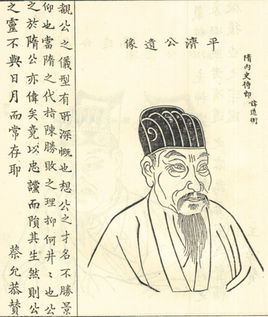 平濟公遺像
隋內史侍郎 諱道衡
觀公之儀型有所深慨也想公之才名不勝景
仰也當隋之代指陳勝敗之理抑何井井也公
之於隋公亦偉矣竟以忠讜而隕其生然則公
之靈不與日月而常存耶 蔡允恭贊